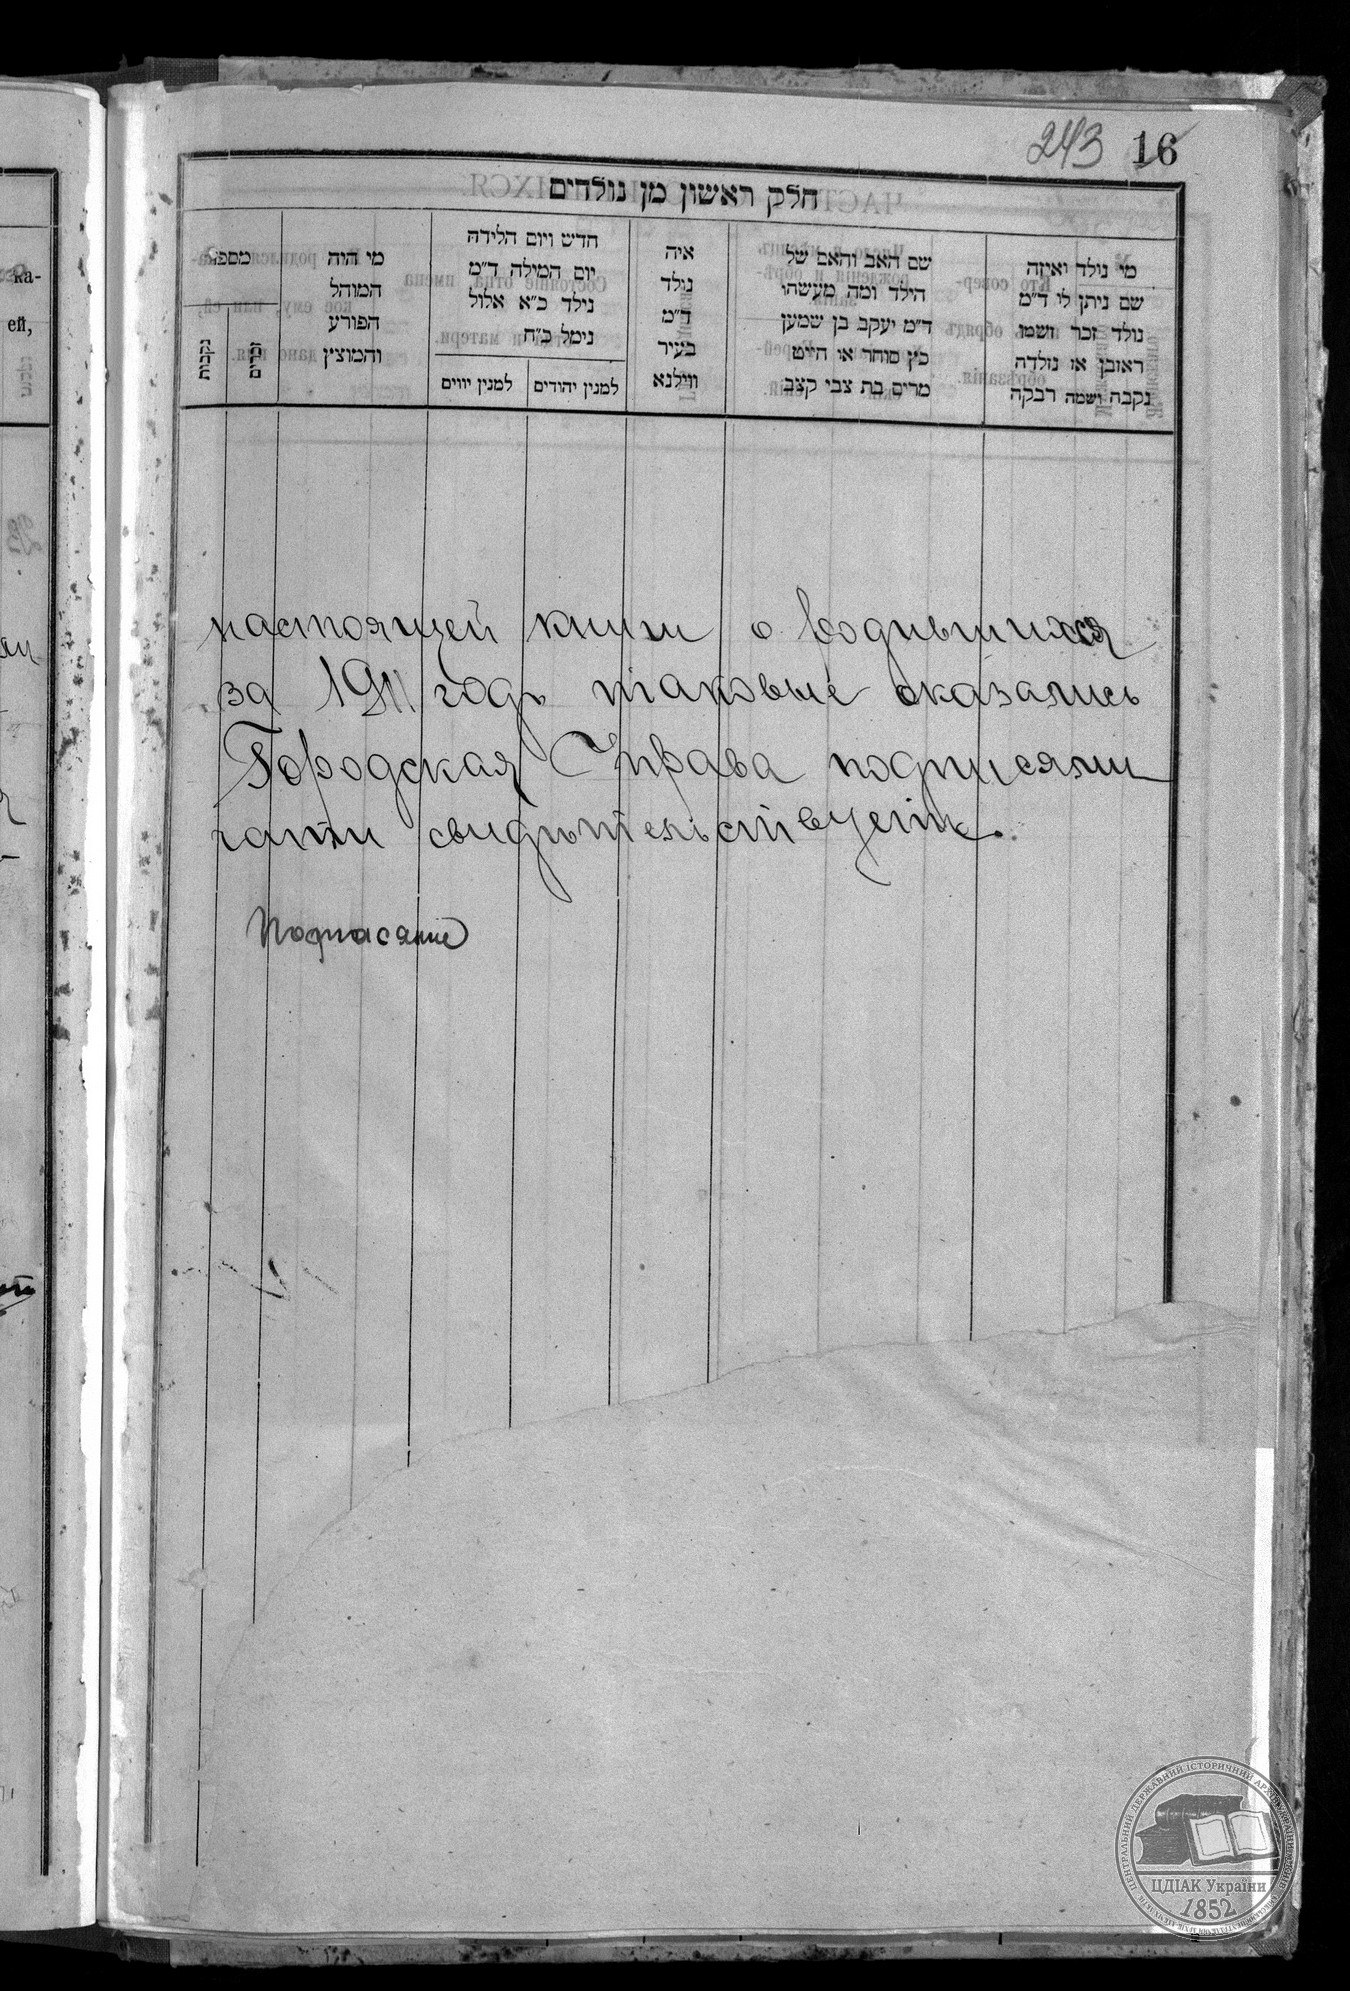 243 16
חלק ראשון מן נולדים
מי נולד ואיזה
שם ניתן לו ד״מ
נולד זכר ושמו
ראובן או נולדה
נקבה ושמה רבקה
שם האב והאם של
הילד ומה מעשהו
ד״מ יעקב בן שמעון
כץ סוחר או חייט
מרים בת צבי קצב
איה
נולד
ד״מ
בעיר
ווילנא
חדש ויום הלידה
יום המילה ד״מ
נילד כ״א אלול
נימל ב״ח
למנין יהודים
למנין יווים
מי היה
המוהל
הפורע
והמוצץ
מספר
זכרים
נקבות
ка-
ей,
настоящей книги о родившихся
за 1911 годъ таковые оказались
Городская Управа подписями
свидѣтельствуетъ.
ЦЕНТРАЛЬНИЙ ДЕРЖАВНИЙ ІСТОРИЧНИЙ АРХІВ УКРАЇНИ
ЦДІАК України
1852